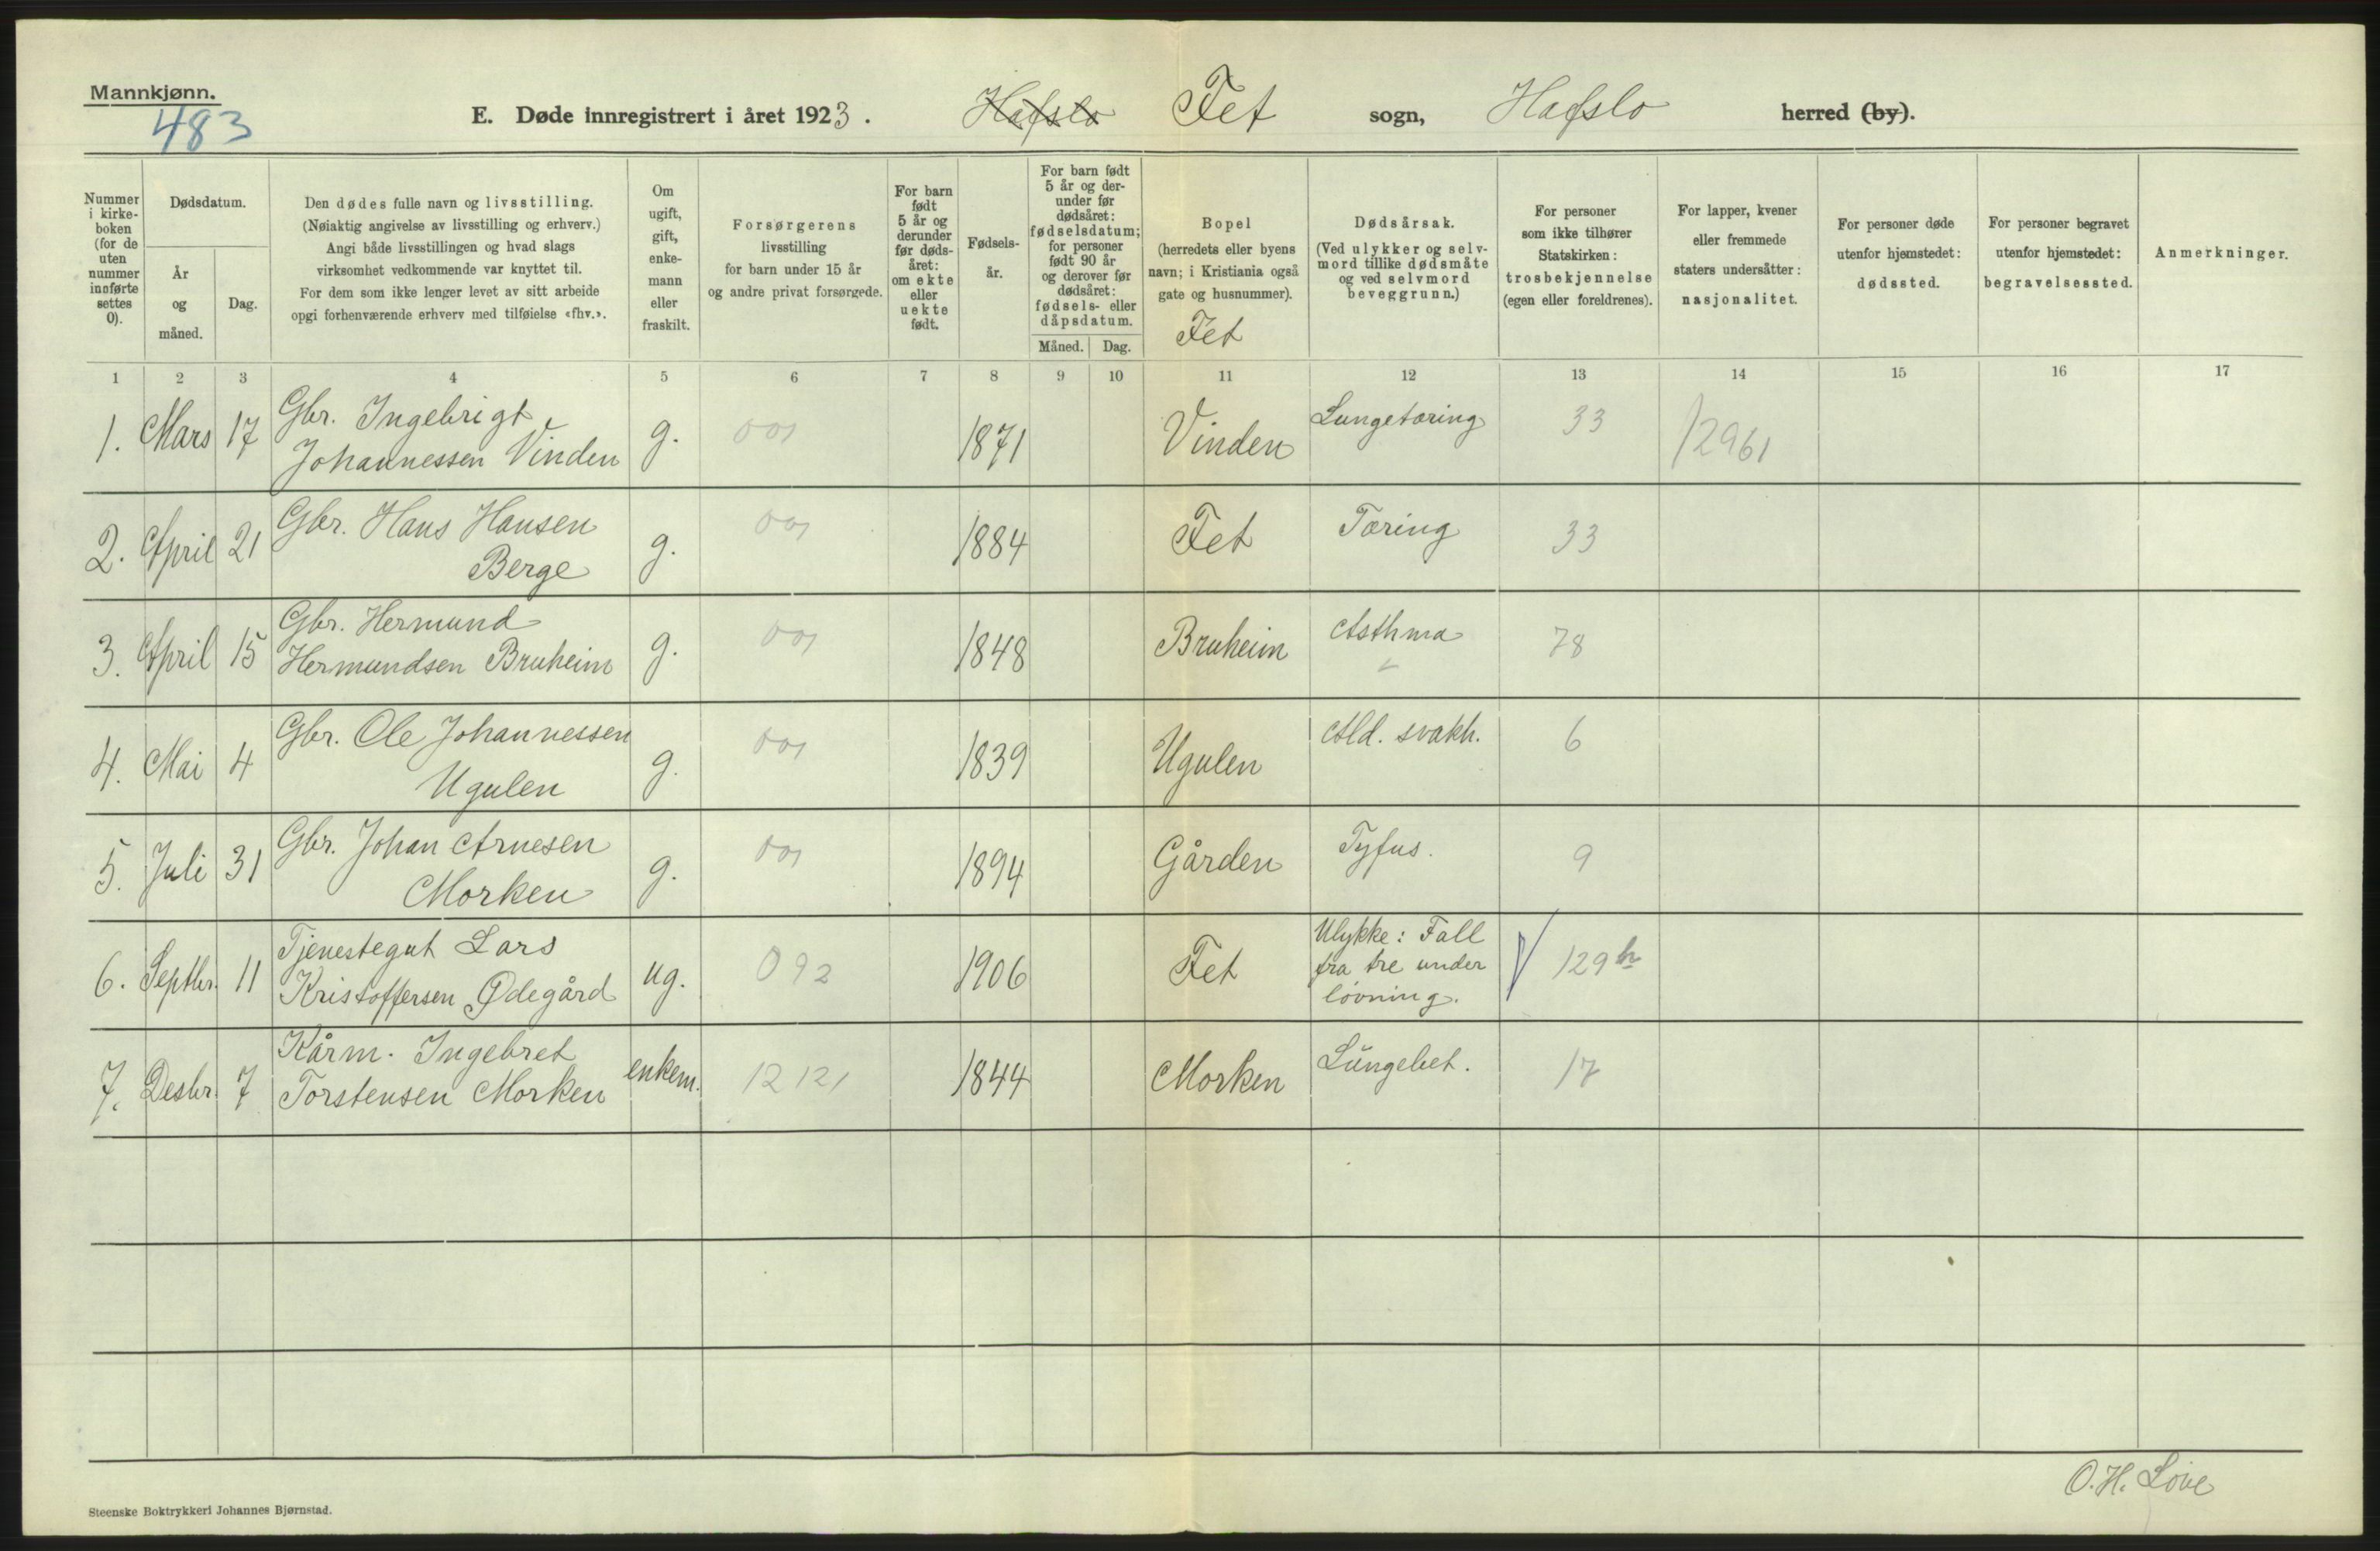 Mannkjønn.
483
E. Døde innregistrert i året 1923. Hafslo Fet sogn, Hafslo herred (by).
Nummer i kirke-boken (for de uten nummer innførte settes 0).
Dødsdatum.
År og måned.
Dag.
Den dødes fulle navn og livsstilling.
(Nøiaktig angivelse av livsstilling og erhverv.)
Angi både livsstillingen og hvad slags
virksomhet vedkommende var knyttet til.
For dem som ikke lenger levet av sitt arbeide
opgi forhenværende erhverv med tilføielse «fhv.».
Om ugift, gift, enke-mann eller fraskilt.
Forsørgerens
livsstilling
for barn under 15 år
og andre privat forsørgede.
For barn født 5 år og derunder før døds-året: om ekte eller uekte født.
Fødsels-år.
For barn født 5 år og der-under før dødsåret: fødselsdatum; for personer født 90 år og derover før dødsåret: fødsels- eller dåpsdatum.
Måned. Dag.
Bopel
(herredets eller byens
navn; i Kristiania også
gate og husnummer).
Fet
Dødsårsak.
(Ved ulykker og selv-
mord tillike dødsmåte
og ved selvmord
beveggrunn.)
For personer
som ikke tilhører
Statskirken:
trosbekjennelse
(egen eller foreldrenes).
For lapper, kvener
eller fremmede
staters undersåtter:
nasjonalitet.
For personer døde
utenfor hjemstedet:
dødssted.
For personer begravet
utenfor hjemstedet:
begravelsessted.
Anmerkninger.
1 2 3 4 5 6 7 8 9 10 11 12 13 14 15 16 17
1. Mars 17 Gbr. Ingebrigt
Johannessen Vinden g. 001 1871 Vinden Lungetæring 33 12961
2. April 21 Gbr. Hans Hansen
Berge g. 001 1884 Fet Tæring 33
3. April 15 Gbr. Hermund
Hermundsen Bruheim g. 001 1848 Bruheim Asthma 78
4. Mai 4 Gbr. Ole Johannessen
Ugulen g. 001 1839 Ugulen Ald. svakh. 6
5. Juli 31 Gbr. Johan Arnesen
Morken g. 001 1894 Gården Tyfus. 9
6. Septbr. 11 Tjenestegut Lars
Kristoffersen Ødegård ug. 092 1906 Fet Ulykke: Fall
fra tre under
løvning. 129 h
7. Desbr. 7 Kårm. Ingebret
Torstensen Morken enkem. 12 121 1844 Morken Lungebet. 17
O. H. Løve
Steenske Boktrykkeri Johannes Bjørnstad.